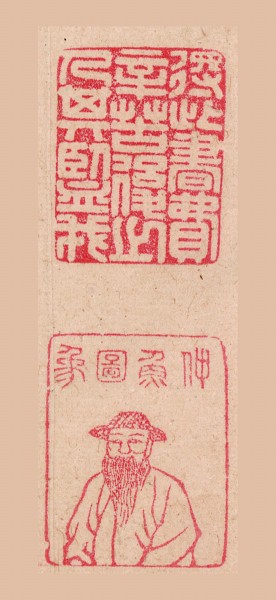 得此書費
辛苦後之
人其鑒我
仲魚圖象